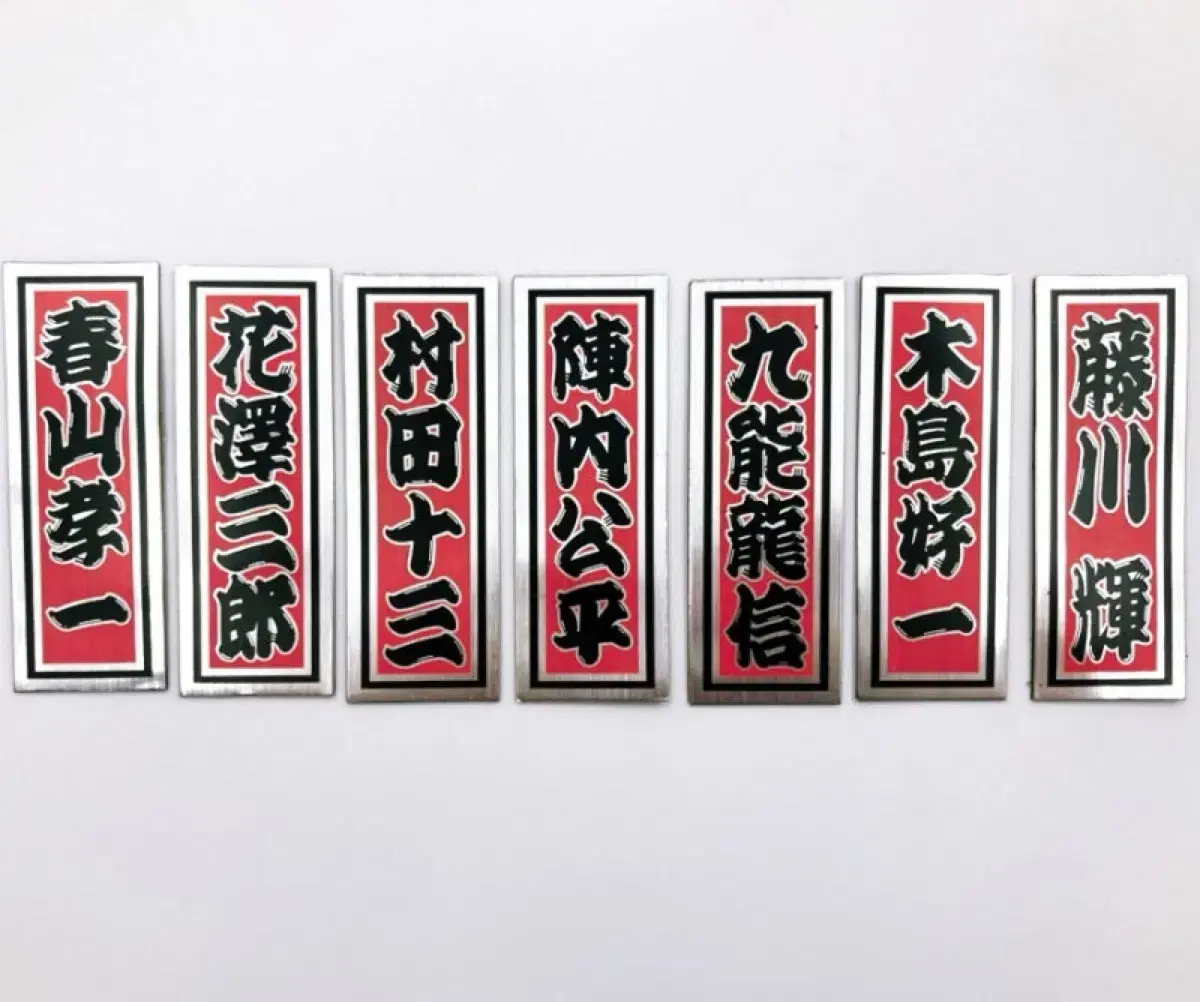 藤川 輝
木島好一
九能龍信
陣内公平
村田十三
花澤三郎
春山孝一